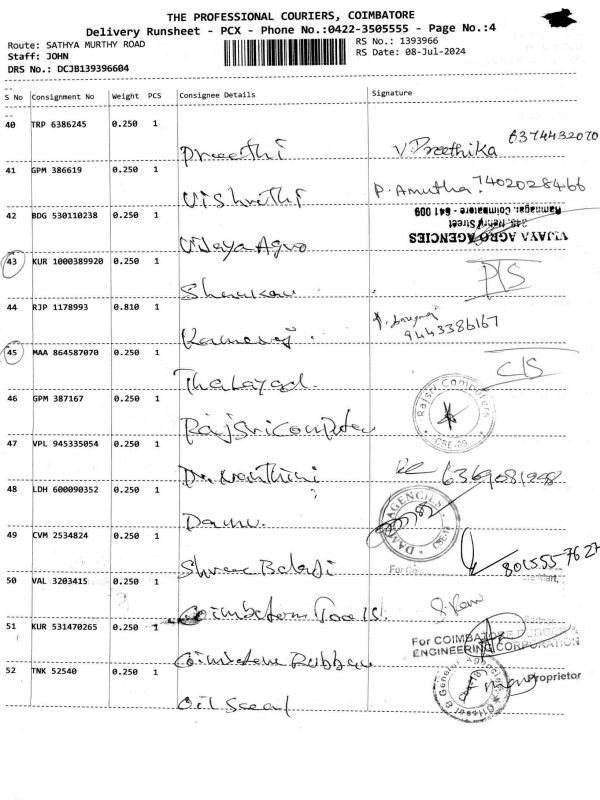 THE PROFESSIONAL COURIERS, COIMBATORE
Delivery Runsheet - PCX - Phone No.:0422-3505555 - Page No.:4
Route: SATHYA MURTHY ROAD
RS No.: 1393966
Staff: JOHN
RS Date: 08-Jul-2024
DRS No.: DCJB139396604
S No Consignment No Weight PCS Consignee Details Signature
40 TRP 6386245 0.250 1
Preethi V. Preethika 6374432070
41 GPM 386619 0.250 1
Vishruthi P. Amutha. 7402028466
42 BDG 530110238 0.250 1
Vijaya Agro
VIJAYA AGRO AGENCIES
348, Nehru Street
Ramnagar, Coimbatore - 641 009
43 KUR 1000389920 0.250 1
44 RJP 1178993 0.810 1
9443386167
45 MAA 864587070 0.250 1
Thalayad. C/S
46 GPM 387167 0.250 1
Rajsri Computer
Rajsri Computers
CBE-09
47 VPL 945335054 0.250 1
48 LDH 600090352 0.250 1
Damu.
AGENCIES
49 CVM 2534824 0.250 1
Shree Balaji
50 VAL 3203415 0.250 1
Coimbatore Tools.
51 KUR 531470265 0.250 1
Coimbatore Rubber
For COIMBATORE
ENGINEERING CORPORATION
Proprietor
52 TNK 52540 0.250 1
Oil Seeal